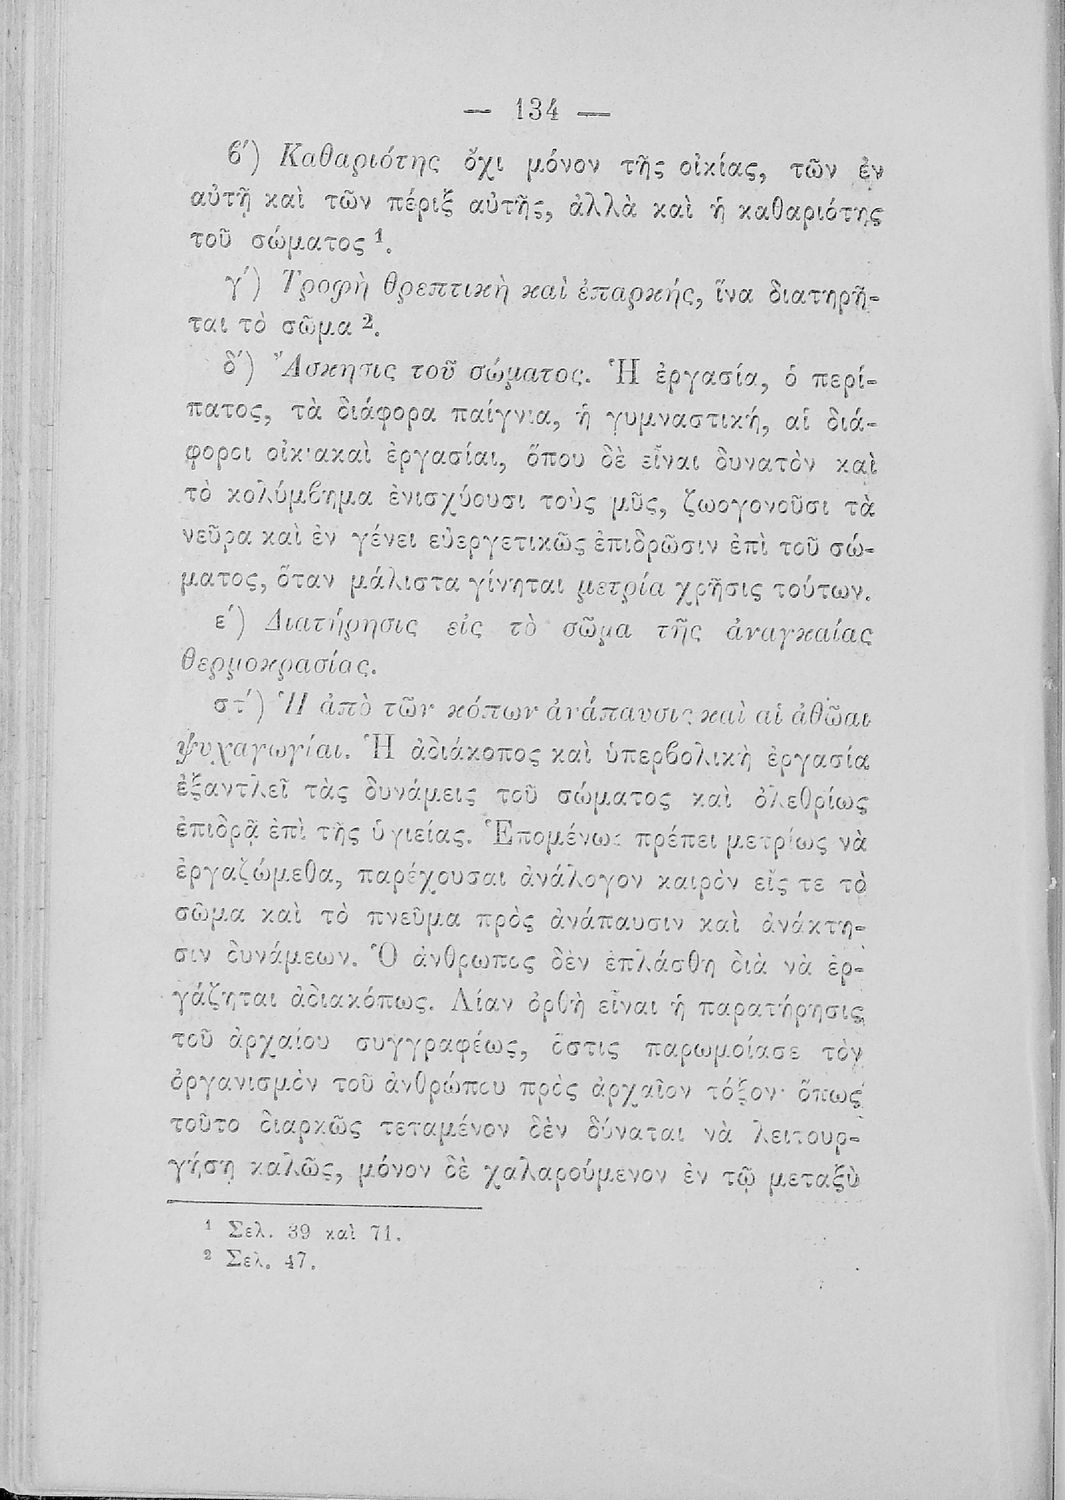 — 134 —
β′) Καθαριότης ὄχι μόνον τῆς οἰκίας, τῶν ἐν
αὐτῇ καὶ τῶν πέριξ αὐτῆς, ἀλλὰ καὶ ἡ καθαριότης
τοῦ σώματος ¹.
γ′) Τροφὴ θρεπτικὴ καὶ ἐπαρκής, ἵνα διατηρῆ-
ται τὸ σῶμα ².
δ′) Ἄσκησις τοῦ σώματος. Ἡ ἐργασία, ὁ περί-
πατος, τὰ διάφορα παίγνια, ἡ γυμναστική, αἱ διά-
φοροι οἰκιακαὶ ἐργασίαι, ὅπου δὲ εἶναι δυνατὸν καὶ
τὸ κολύμβημα ἐνισχύουσι τοὺς μῦς, ζωογονοῦσι τὰ
νεῦρα καὶ ἐν γένει εὐεργετικῶς ἐπιδρῶσιν ἐπὶ τοῦ σώ-
ματος, ὅταν μάλιστα γίνηται μετρία χρῆσις τούτων.
ε′) Διατήρησις εἰς τὸ σῶμα τῆς ἀναγκαίας
θερμοκρασίας.
στ′) Ἡ ἀπὸ τῶν κόπων ἀνάπαυσις καὶ αἱ ἀθῶαι
ψυχαγωγίαι. Ἡ ἀδιάκοπος καὶ ὑπερβολικὴ ἐργασία
ἐξαντλεῖ τὰς δυνάμεις τοῦ σώματος καὶ ὀλεθρίως
ἐπιδρᾷ ἐπὶ τῆς ὑγιείας. Ἑπομένως πρέπει μετρίως νὰ
ἐργαζώμεθα, παρέχουσαι ἀνάλογον καιρὸν εἴς τε τὸ
σῶμα καὶ τὸ πνεῦμα πρὸς ἀνάπαυσιν καὶ ἀνάκτη-
σιν δυνάμεων. Ὁ ἄνθρωπος δὲν ἐπλάσθη διὰ νὰ ἐρ-
γάζηται ἀδιακόπως. Λίαν ὀρθὴ εἶναι ἡ παρατήρησις
τοῦ ἀρχαίου συγγραφέως, ὅστις παρωμοίασε τὸν
ὀργανισμὸν τοῦ ἀνθρώπου πρὸς ἀρχαῖον τόξον· ὅπως
τοῦτο διαρκῶς τεταμένον δὲν δύναται νὰ λειτουρ-
γήσῃ καλῶς, μόνον δὲ χαλαρούμενον ἐν τῷ μεταξὺ
¹ Σελ. 39 καὶ 71.
² Σελ. 47.